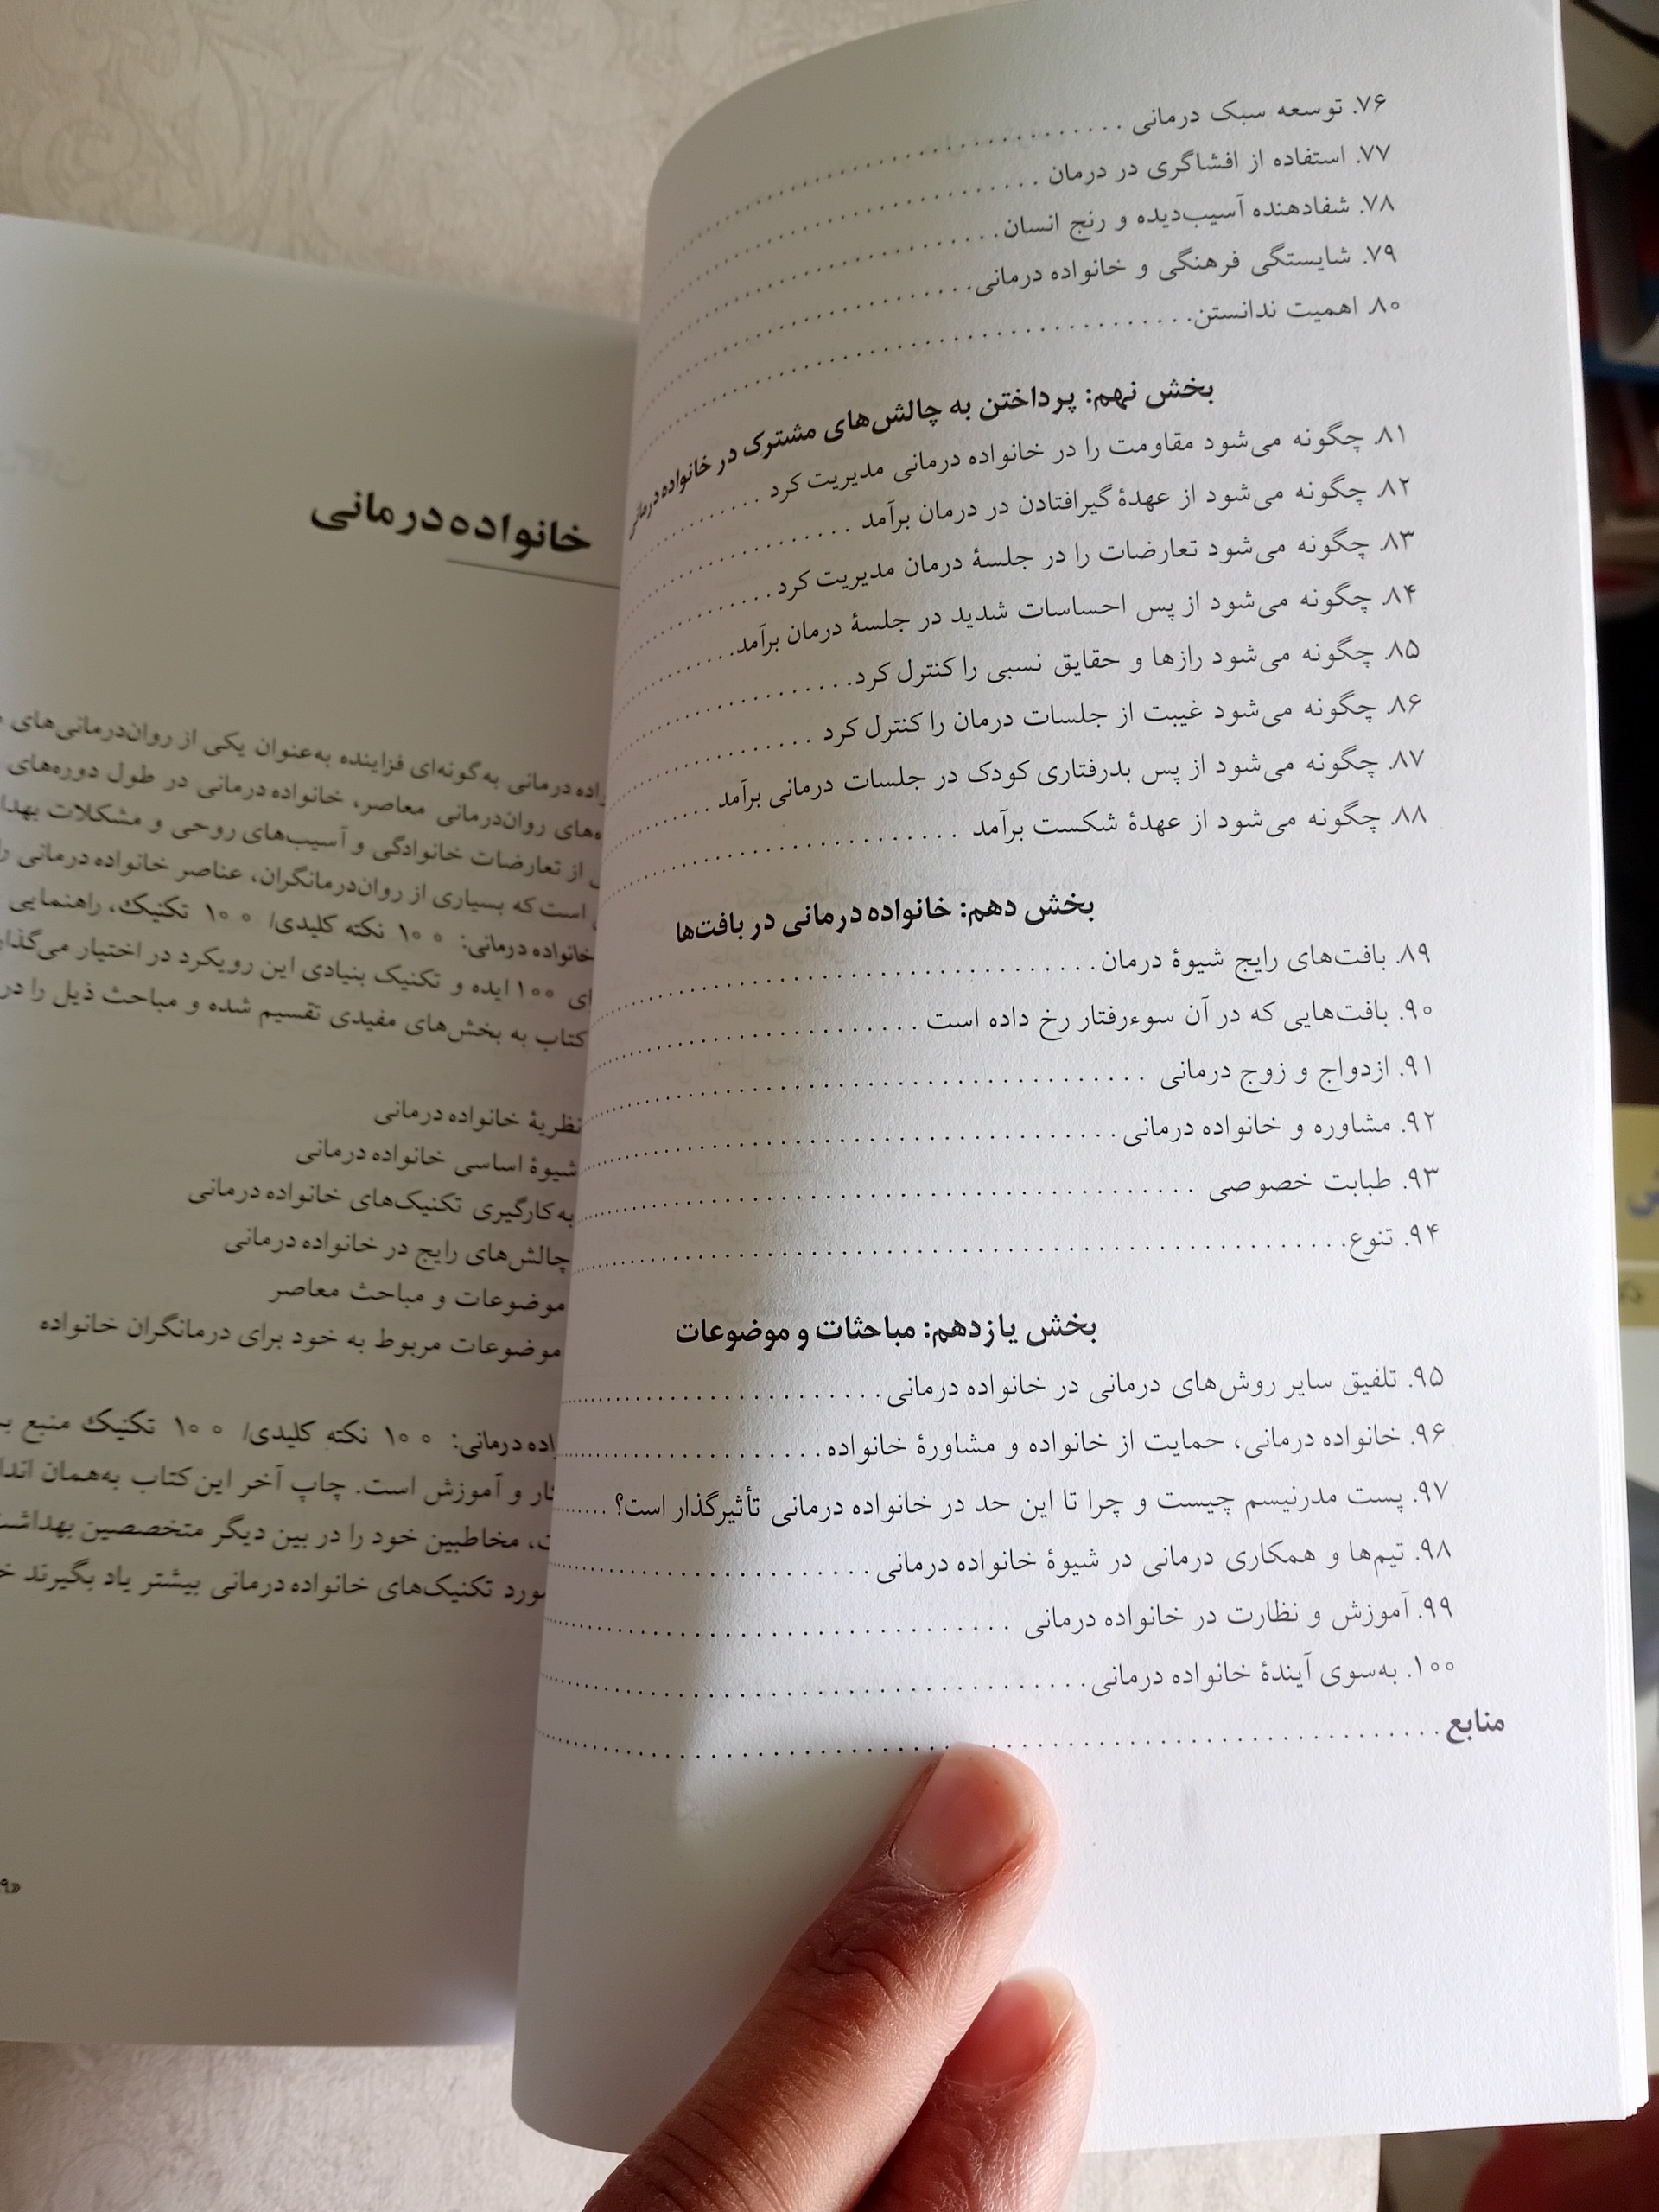 ۷۶. توسعه سبک درمانی
۷۷. استفاده از افشاگری در درمان
۷۸. شفادهنده آسیب‌دیده و رنج انسان
۷۹. شایستگی فرهنگی و خانواده درمانی
۸۰. اهمیت ندانستن
بخش نهم: پرداختن به چالش‌های مشترک در خانواده درمانی
۸۱. چگونه می‌شود مقاومت را در خانواده درمانی مدیریت کرد
۸۲. چگونه می‌شود از عهدهٔ گیرافتادن در درمان برآمد
۸۳. چگونه می‌شود تعارضات را در جلسهٔ درمان مدیریت کرد
۸۴. چگونه می‌شود از پس احساسات شدید در جلسهٔ درمان برآمد
۸۵. چگونه می‌شود رازها و حقایق نسبی را کنترل کرد
۸۶. چگونه می‌شود غیبت از جلسات درمان را کنترل کرد
۸۷. چگونه می‌شود از پس بدرفتاری کودک در جلسات درمانی برآمد
۸۸. چگونه می‌شود از عهدهٔ شکست برآمد
بخش دهم: خانواده درمانی در بافت‌ها
۸۹. بافت‌های رایج شیوهٔ درمان
۹۰. بافت‌هایی که در آن سوءرفتار رخ داده است
۹۱. ازدواج و زوج درمانی
۹۲. مشاوره و خانواده درمانی
۹۳. طبابت خصوصی
۹۴. تنوع
بخش یازدهم: مباحثات و موضوعات
۹۵. تلفیق سایر روش‌های درمانی در خانواده درمانی
۹۶. خانواده درمانی، حمایت از خانواده و مشاورهٔ خانواده
۹۷. پست مدرنیسم چیست و چرا تا این حد در خانواده درمانی تأثیرگذار است؟
۹۸. تیم‌ها و همکاری درمانی در شیوهٔ خانواده درمانی
۹۹. آموزش و نظارت در خانواده درمانی
۱۰۰. به‌سوی آیندهٔ خانواده درمانی
منابع
خانواده درمانی
درمانی به‌گونه‌ای فزاینده به‌عنوان یکی از روان‌درمانی‌های
روان‌درمانی معاصر، خانواده درمانی در طول دوره‌های
از تعارضات خانوادگی و آسیب‌های روحی و مشکلات
است که بسیاری از روان‌درمانگران، عناصر خانواده درمانی
خانواده درمانی: ۱۰۰ نکته کلیدی/ ۱۰۰ تکنیک، راهنمایی
۱۰۰ ایده و تکنیک بنیادی این رویکرد در اختیار
کتاب به بخش‌های مفیدی تقسیم شده و مباحث ذیل را در
نظریهٔ خانواده درمانی
شیوهٔ اساسی خانواده درمانی
به‌کارگیری تکنیک‌های خانواده درمانی
چالش‌های رایج در خانواده درمانی
موضوعات و مباحث معاصر
موضوعات مربوط به خود برای درمانگران خانواده
درمانی: ۱۰۰ نکته کلیدی/ ۱۰۰ تکنیک منبع
و آموزش است. چاپ آخر این کتاب به‌همان
مخاطبین خود را در بین دیگر متخصصین
تکنیک‌های خانواده درمانی بیشتر یاد بگیرند